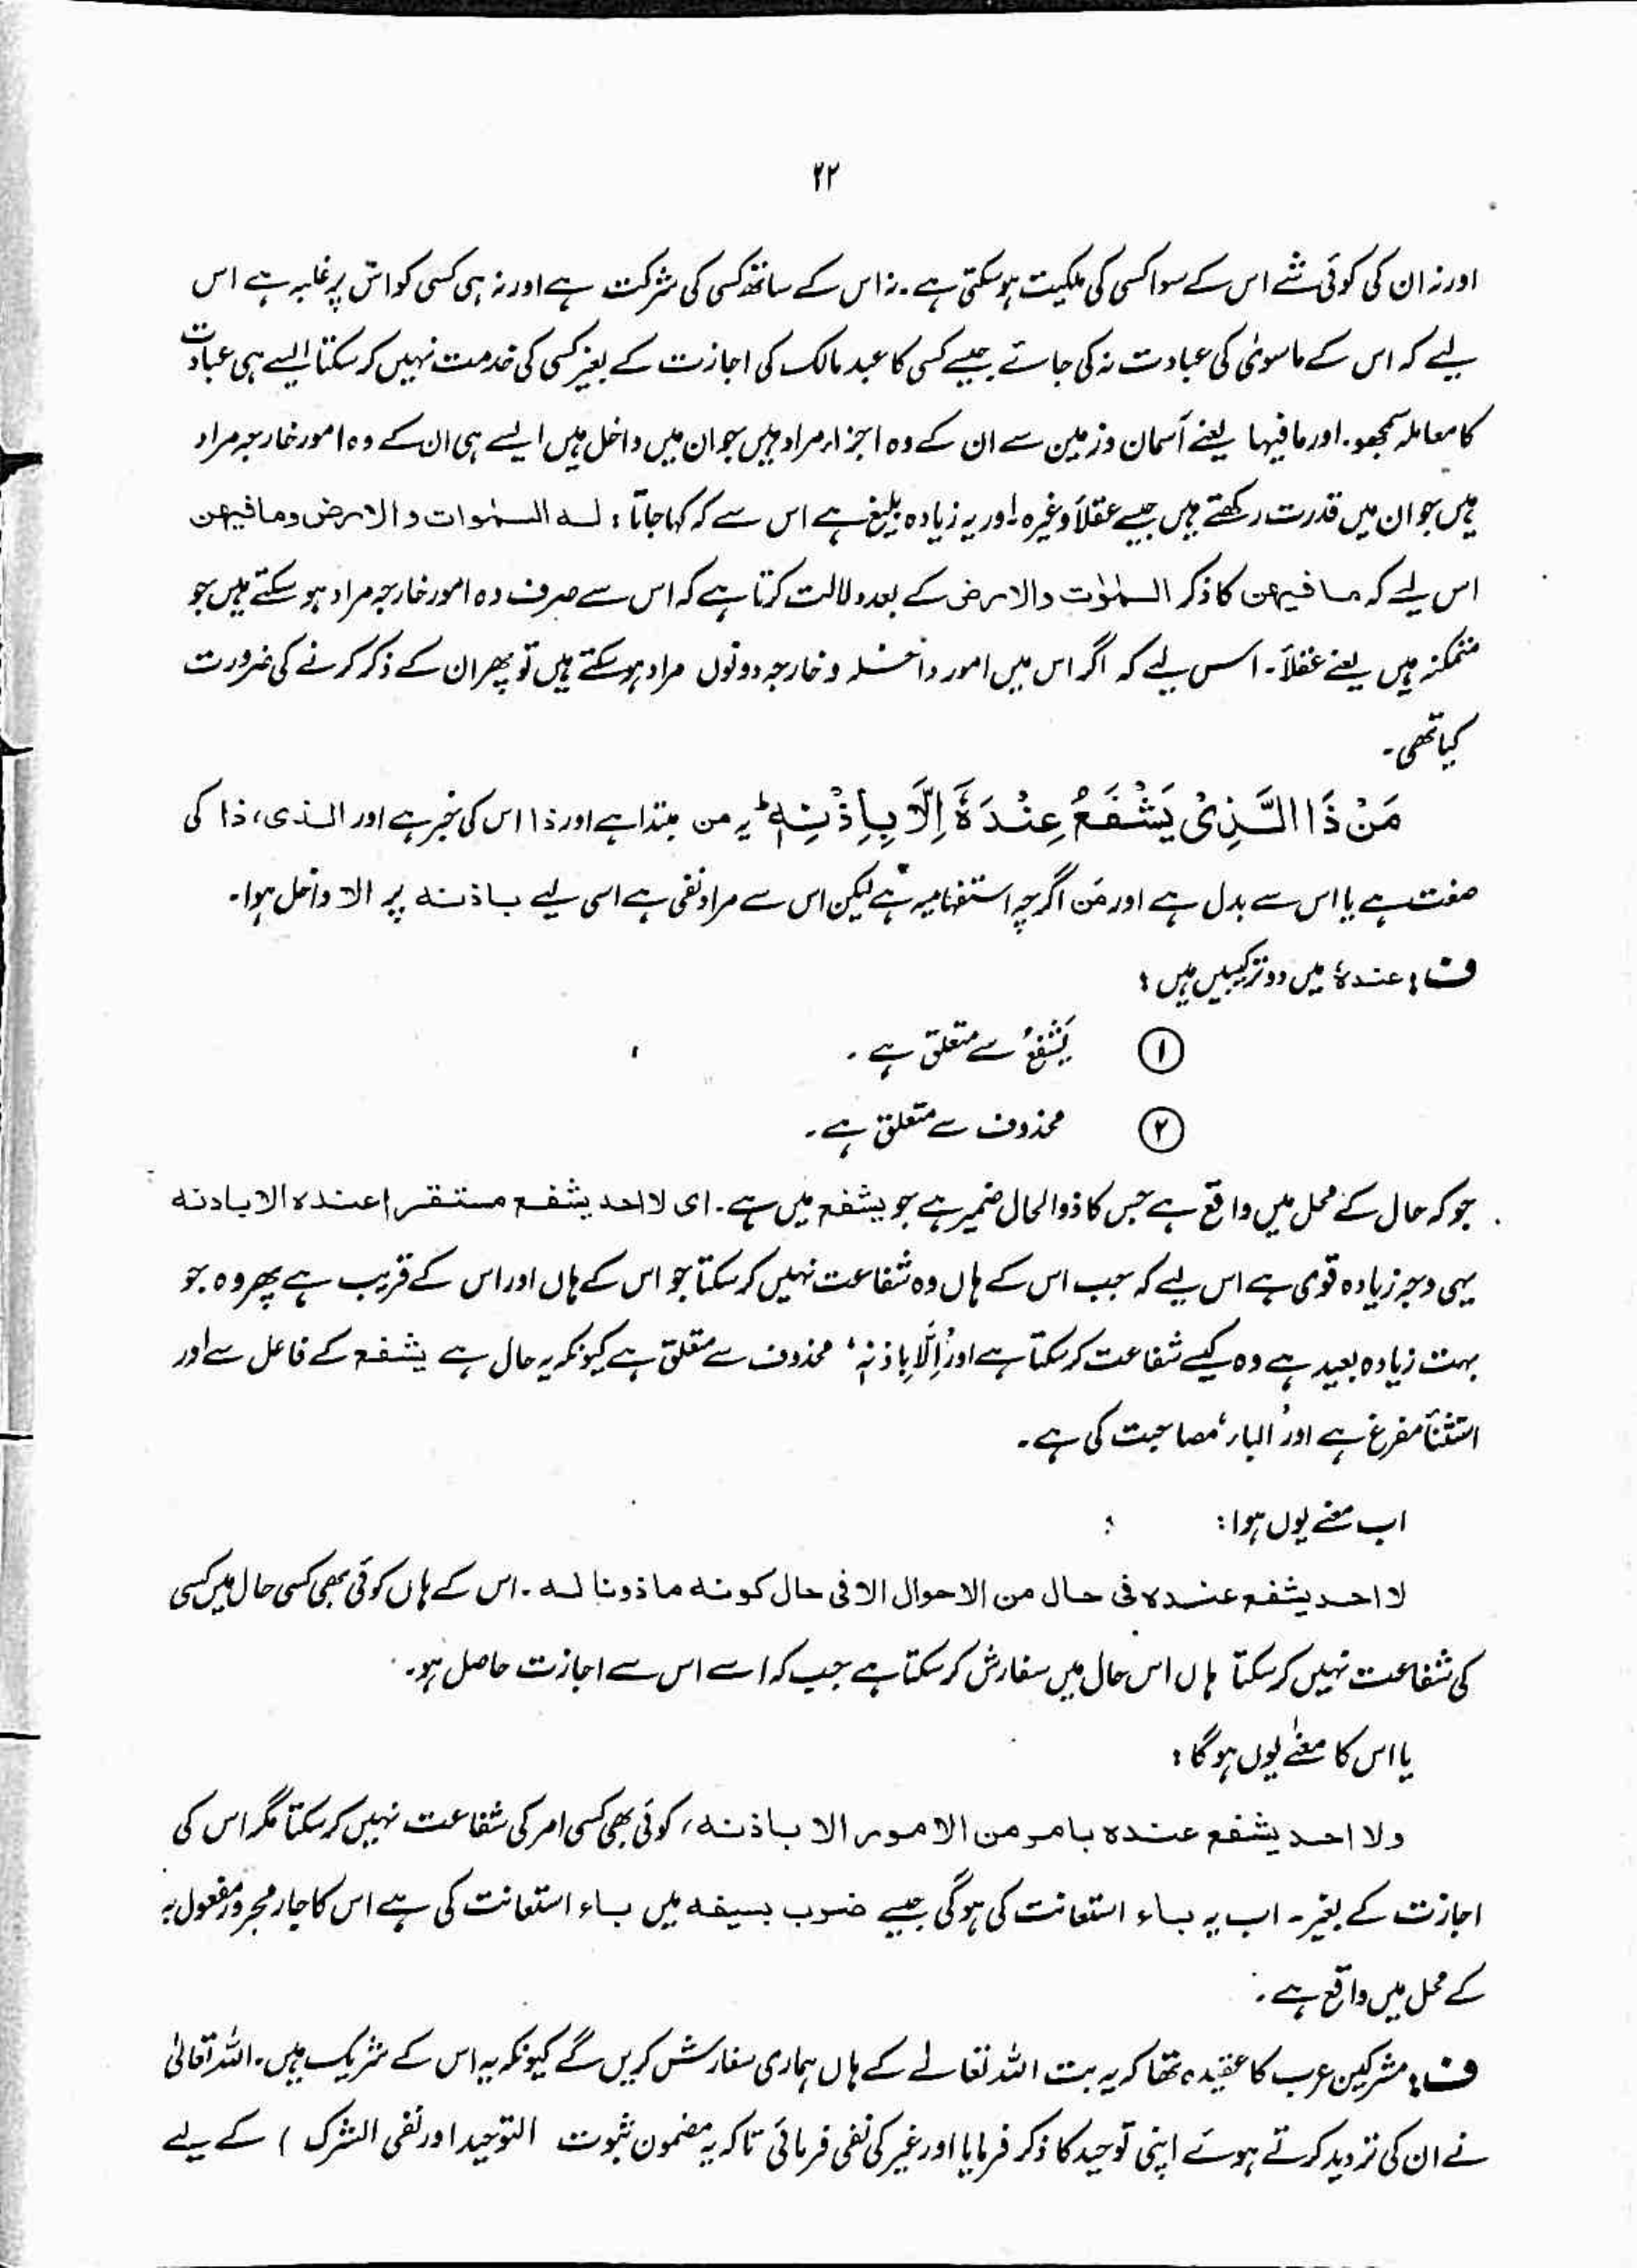 ۲۲
اور نہ ان کی کوئی شے اس کے سوا کسی کی ملکیت ہو سکتی ہے۔ نہ اس کے ساتھ کسی کی شرکت ہے اور نہ ہی کسی کو اس پر غلبہ ہے اس
لیے کہ اس کے ماسویٰ کی عبادت نہ کی جائے جیسے کسی کا عبد مالک کی اجازت کے بغیر کسی کی خدمت نہیں کر سکتا ایسے ہی عبادت
کا معاملہ سمجھو۔ اور مافیہا یعنے آسمان و زمین سے ان کے وہ اجزاء مراد ہیں جو ان میں داخل ہیں ایسے ہی ان کے وہ امور خارجہ مراد
ہیں جو ان میں قدرت رکھتے ہیں جیسے عقلاً وغیرہ۔ اور یہ زیادہ بلیغ ہے اس سے کہ کہا جاتا : لہ السمٰوات و الارض وما فیہن
اس لیے کہ ما فیہن کا ذکر السمٰوٰت والارض کے بعد دلالت کرتا ہے کہ اس سے صرف وہ امور خارجہ مراد ہو سکتے ہیں جو
متمکنہ ہیں یعنے عقلاً۔ اس لیے کہ اگر اس میں امور داخلہ و خارجہ دونوں مراد ہو سکتے ہیں تو پھر ان کے ذکر کرنے کی ضرورت
کیا تھی۔
مَنْ ذَا الَّذِیْ یَشْفَعُ عِنْدَہٗٓ اِلَّا بِاِذْنِہٖ ؕ یہ من مبتدا ہے اور ذا اس کی خبر ہے اور الذی، ذا کی
صفت ہے یا اس سے بدل ہے اور مَن اگرچہ استفہامیہ ہے لیکن اس سے مراد نفی ہے اسی لیے باذنہ پر الا داخل ہوا۔
ف : عندہٗ میں دو ترکیبیں ہیں :
① یَشْفَعُ سے متعلق ہے۔
② محذوف سے متعلق ہے۔
جو کہ حال کے محل میں واقع ہے جس کا ذوالحال ضمیر ہے جو یشفع میں ہے۔ ای لا احد یشفع مستقرا عندہ الا باذنہ
یہی وجہ زیادہ قوی ہے اس لیے کہ جب اس کے ہاں وہ شفاعت نہیں کر سکتا جو اس کے ہاں اور اس کے قریب ہے پھر وہ جو
بہت زیادہ بعید ہے وہ کیسے شفاعت کر سکتا ہے اور 'اِلَّا بِاِذْنِہٖ' محذوف سے متعلق ہے کیونکہ یہ حال ہے یشفع کے فاعل سے اور
استثنأ مفرغ ہے اور 'الباء' مصاحبت کی ہے۔
اب معنے یوں ہوا :
لا احد یشفع عندہ فی حال من الاحوال الا فی حال کونہ ماذونا لہ۔ اس کے ہاں کوئی بھی کسی حال میں کسی
کی شفاعت نہیں کر سکتا ہاں اس حال میں سفارش کر سکتا ہے جب کہ اسے اس سے اجازت حاصل ہو۔
یا اس کا معنےٰ یوں ہو گا :
ولا احد یشفع عندہ بامر من الامور الا باذنہ، کوئی بھی کسی امر کی شفاعت نہیں کر سکتا مگر اس کی
اجازت کے بغیر۔ اب یہ باء استعانت کی ہو گی جیسے ضرب بسیفہ میں باء استعانت کی ہے اس کا جار مجرور مفعول بہ
کے محل میں واقع ہے۔
ف : مشرکین عرب کا عقیدہ تھا کہ یہ بت اللہ تعالےٰ کے ہاں ہماری سفارش کریں گے کیونکہ یہ اس کے شریک ہیں۔ اللہ تعالیٰ
نے ان کی تردید کرتے ہوئے اپنی توحید کا ذکر فرمایا اور غیر کی نفی فرمائی تاکہ یہ مضمون ثبوت التوحید اور نفی الشرک ) کے لیے